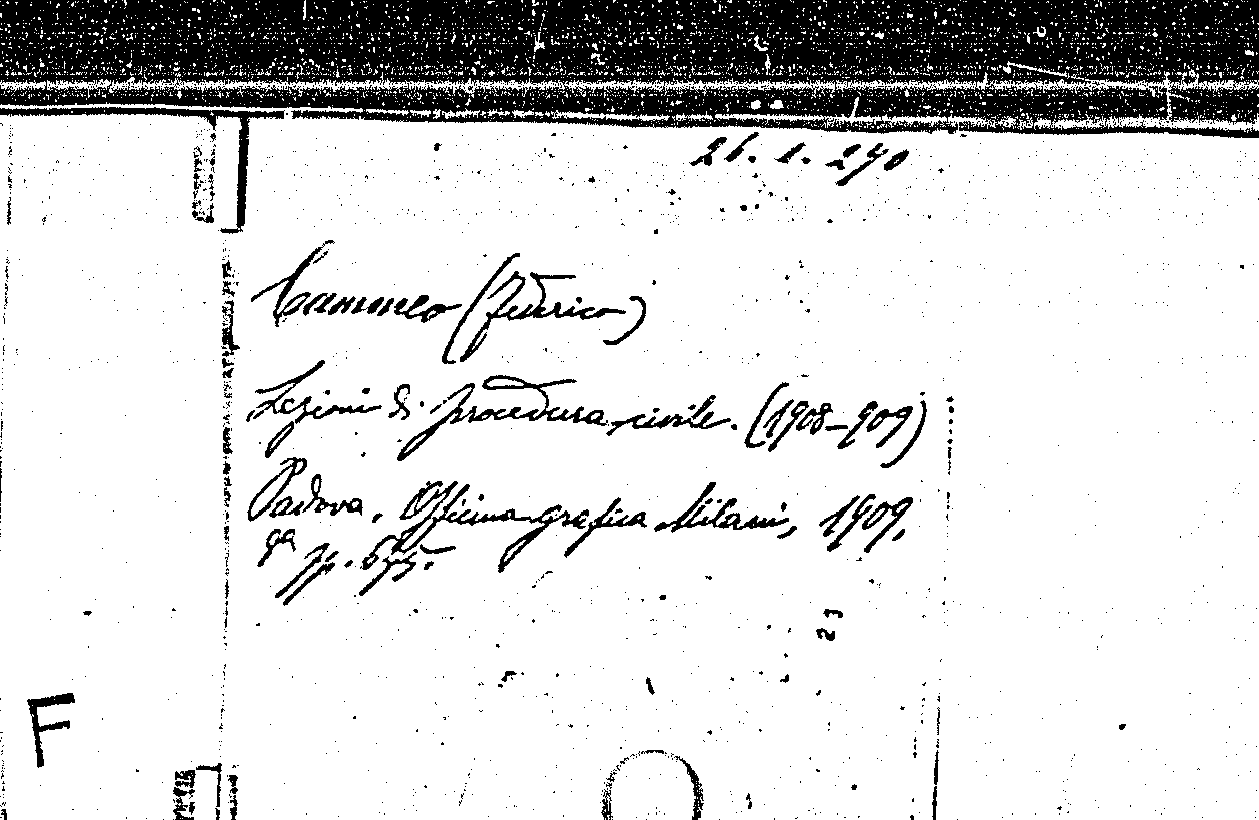 26. 1. 270
Cammeo (Federico)
Lezioni di procedura civile. (1908-909)
Padova, Officina grafica Milani, 1909,
8° pp. 655.
23
F